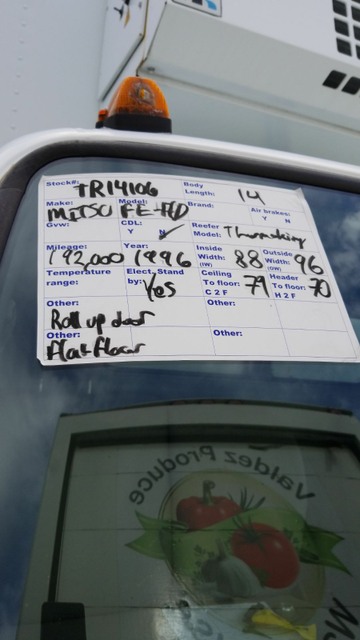 Stock#: TR14106 Body Length: 14
Make: MITSU Model: FE-HD Brand: Air brakes: Y N
Gvw: CDL: Y N ✓ Reefer Model: Thermoking
Mileage: 192,000 Year: 1996 Inside Width: (IW) 88 Outside Width: (OW) 96
Temperature range: Elect. Stand by: Yes Ceiling To floor: C 2 F 79 Header To floor: H 2 F 70
Other: Roll up door Other:
Other: Flat Floor Other:
Valdez Produce